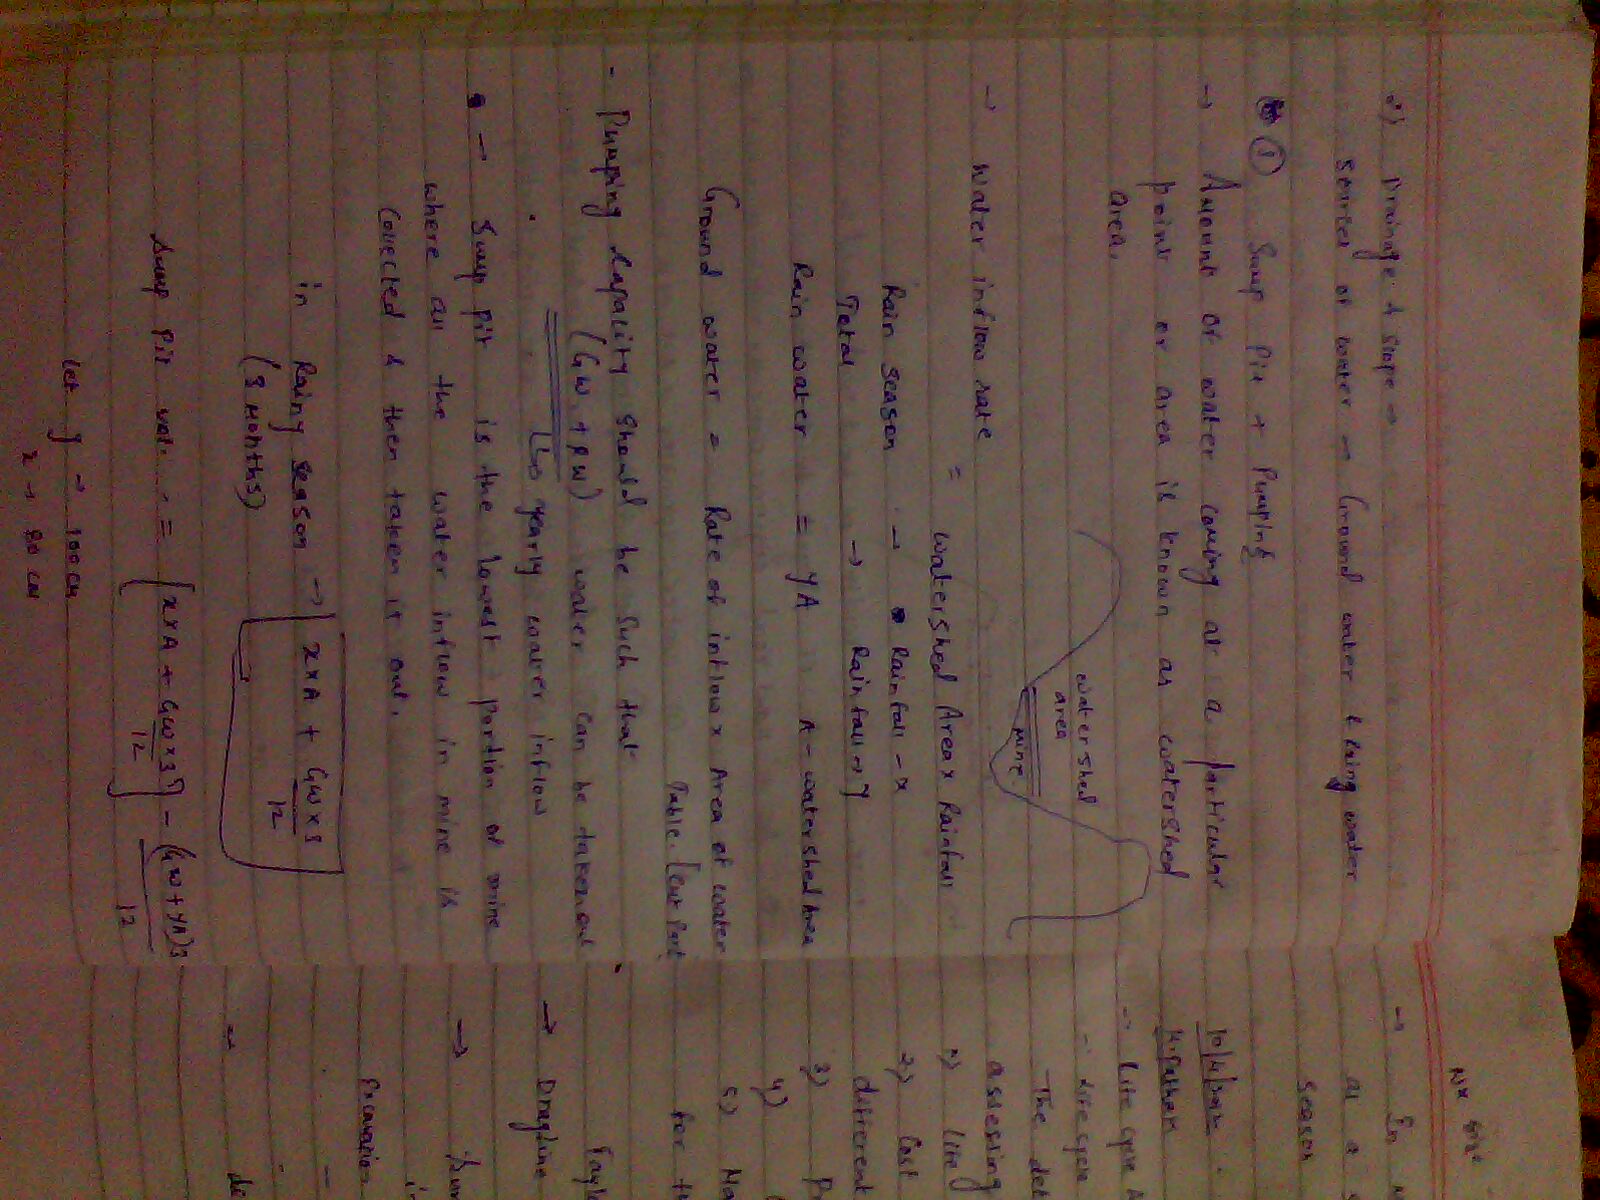 Drainage & slope →
Sources of water → Ground water & Rainy water
① Sump Pit + Pumping
→ Amount of water coming at a particular
point or area is known as watershed
area.
watershed
area
mine
→ Water inflow rate
= watershed Area x Rainfall
Rain season → Rainfall - x
Total → Rainfall → y
Rain water = yA A - watershed Area
Ground water = Rate of inflow x Area of water
Table. [Cut Part
- Pumping Capacity should be such that
(GW + RW) water can be taken out
↳ yearly water inflow
→ Sump pit is the lowest portion of mine
where all the water inflow in mine is
collected & then taken it out.
in Rainy season → x×A + GW×3
12
(3 Months)
Sump Pit = [x×A + GW×3] - (GW+yA)3
12 12
let y → 100 cm
x → 80 cm
→ En
as a
season
→ life cycle
- life cycle
The det
assessing
2) Cost
different
3) Pr
4)
5) Ma
for th
→ Dragline
→ Sur
Excavation
→ de